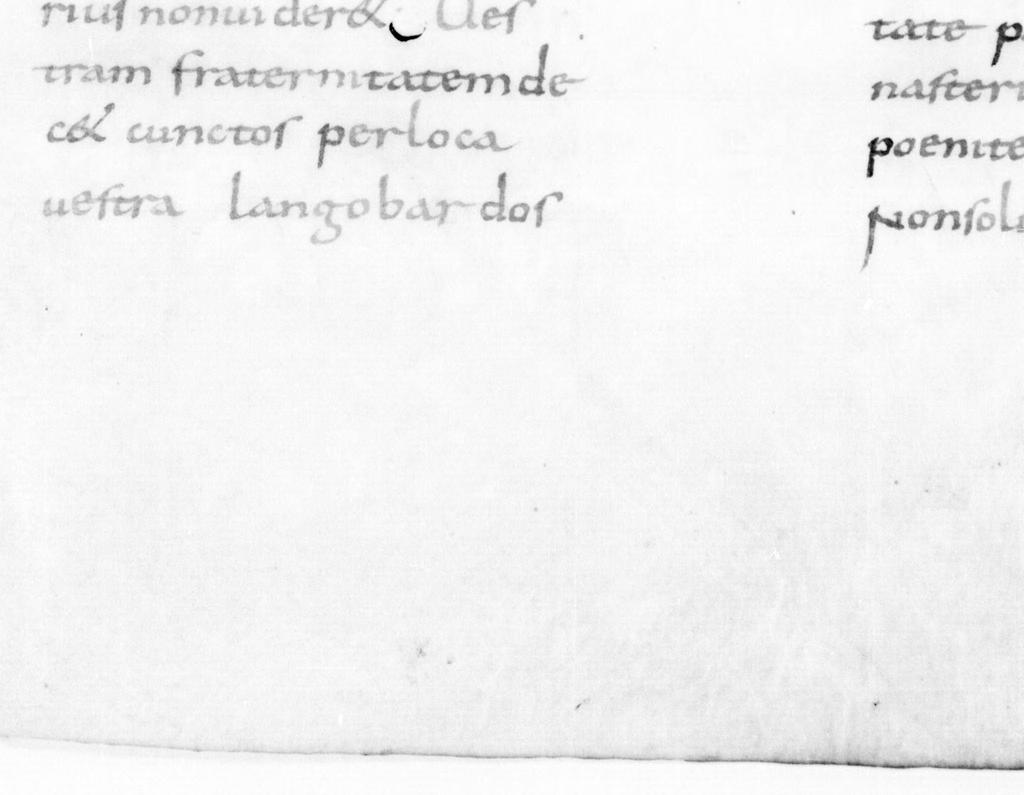 rius non uider& Ues
tram fraternitatem de
c& cunctos per loca
uestra langobardos
tate p
nasteri
poenite
Non sol